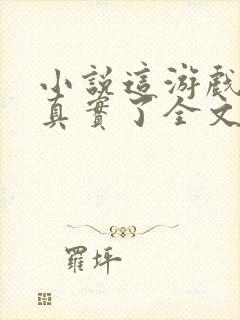 小說這游戲
真實了全文
羅坪